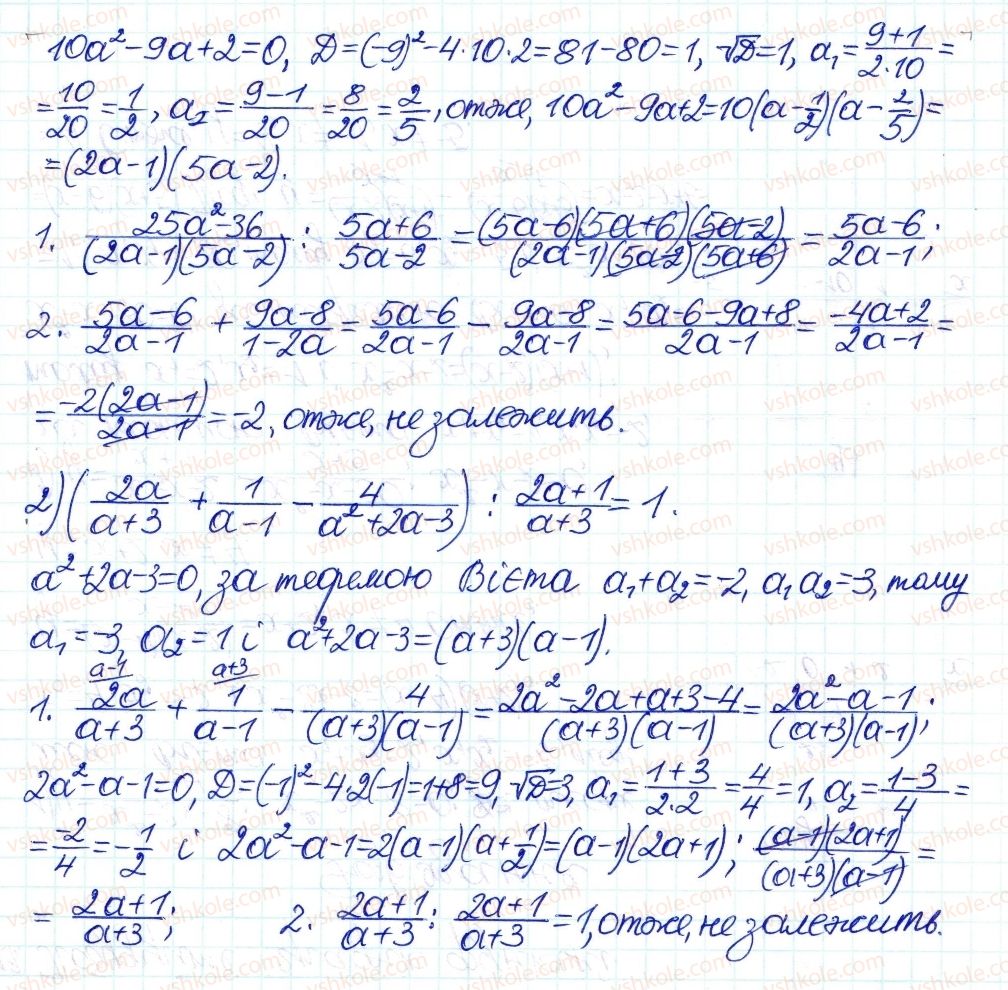 10a² − 9a + 2 = 0, D = (−9)² − 4·10·2 = 81 − 80 = 1, √D = 1, a₁ = (9+1)/(2·10) =
= 10/20 = 1/2, a₂ = (9−1)/20 = 8/20 = 2/5, отже, 10a² − 9a + 2 = 10(a − 1/2)(a − 2/5) =
= (2a − 1)(5a − 2).
1. (25a² − 36)/((2a − 1)(5a − 2)) : (5a + 6)/(5a − 2) = ((5a − 6)(5a + 6)(5a − 2))/((2a − 1)(5a − 2)(5a + 6)) = (5a − 6)/(2a − 1);
2. (5a − 6)/(2a − 1) + (9a − 8)/(1 − 2a) = (5a − 6)/(2a − 1) − (9a − 8)/(2a − 1) = (5a − 6 − 9a + 8)/(2a − 1) = (−4a + 2)/(2a − 1) =
= −2(2a − 1)/(2a − 1) = −2, отже, не залежить.
2) (2a/(a + 3) + 1/(a − 1) − 4/(a² + 2a − 3)) : (2a + 1)/(a + 3) = 1.
a² + 2a − 3 = 0, за теоремою Вієта a₁ + a₂ = −2, a₁a₂ = −3, тому
a₁ = −3, a₂ = 1 і a² + 2a − 3 = (a + 3)(a − 1).
a−1 a+3
1. 2a/(a + 3) + 1/(a − 1) − 4/((a + 3)(a − 1)) = (2a² − 2a + a + 3 − 4)/((a + 3)(a − 1)) = (2a² − a − 1)/((a + 3)(a − 1));
2a² − a − 1 = 0, D = (−1)² − 4·2(−1) = 1 + 8 = 9, √D = 3, a₁ = (1+3)/(2·2) = 4/4 = 1, a₂ = (1−3)/4 =
= −2/4 = −1/2 і 2a² − a − 1 = 2(a − 1)(a + 1/2) = (a − 1)(2a + 1); ((a − 1)(2a + 1))/((a + 3)(a − 1)) =
= (2a + 1)/(a + 3); 2. (2a + 1)/(a + 3) : (2a + 1)/(a + 3) = 1, отже, не залежить.
vshkole.com